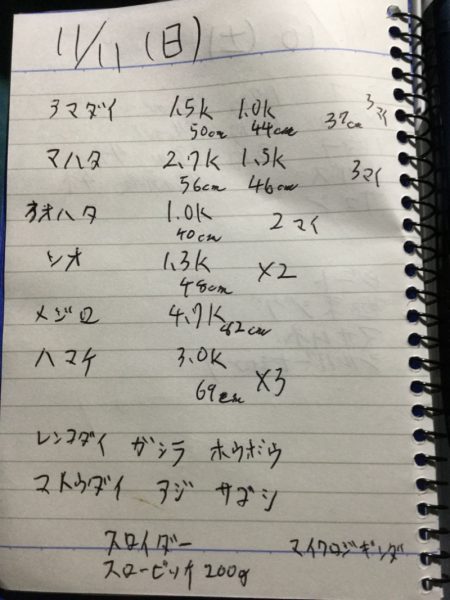 11/11 (日)
アマダイ 1.5k 1.0k 3マイ
50cm 44cm 37cm
マハタ 2.7k 1.5k 3マイ
56cm 46cm
オオハタ 1.0k 2マイ
40cm
シオ 1.3k ×2
48cm
メジロ 4.7k 82cm
ハマチ 3.0k ×3
69cm
レンコダイ ガシラ ホウボウ
マトウダイ アジ サゴシ
スロイダー マイクロジギング
スローピッチ 200g